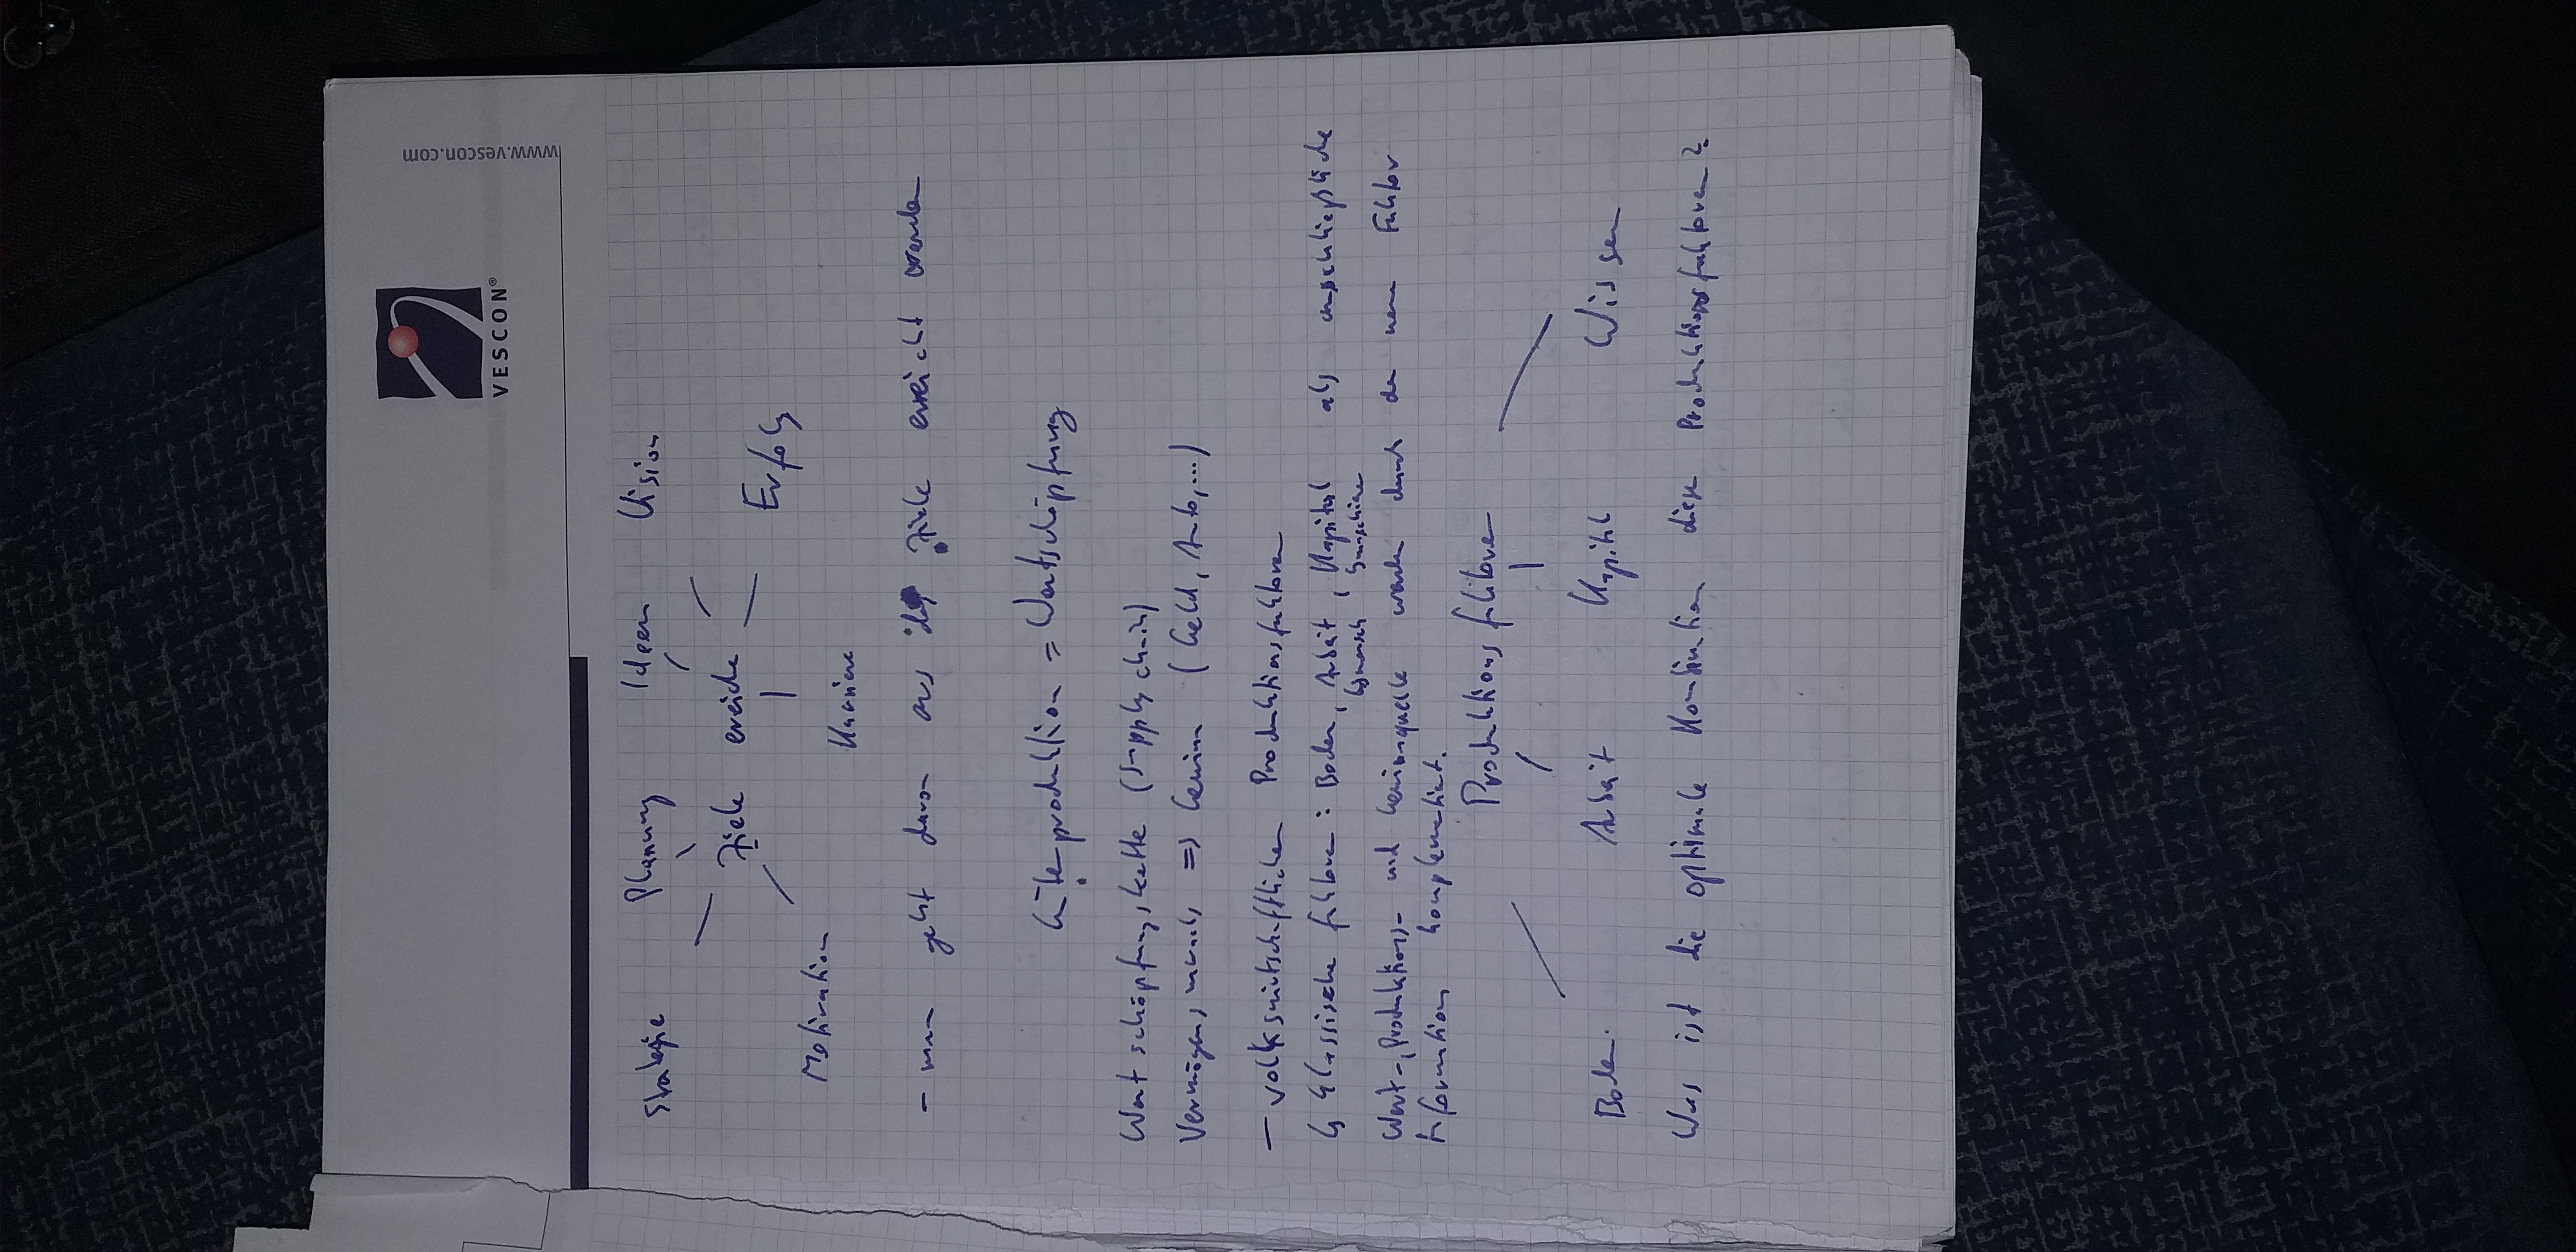 VESCON®
www.vescon.com
Strategie Planung Ideen Vision
Ziele erreiche
Erfolg
Motivation
Karriere
- man geht davon aus das Ziele erreicht werden
Güterproduktion = Wertschöpfung
Wertschöpfungskette (Supply chain)
Vermögenswachs => Gewinn (Geld, Auto,...)
- volkswirtschaftlichen Produktionsfaktoren
↳ Klassische Faktoren: Boden, Arbeit, Kapital als ausschließliche
↳ mensch ↳ maschine
Wert-, Produktions- und Gewinnquelle werden durch den neuen Faktor
Information komplementiert.
Produktionsfaktoren
Boden Arbeit Kapital Wissen
Was ist die optimale Kombination dieser Produktionsfaktoren?